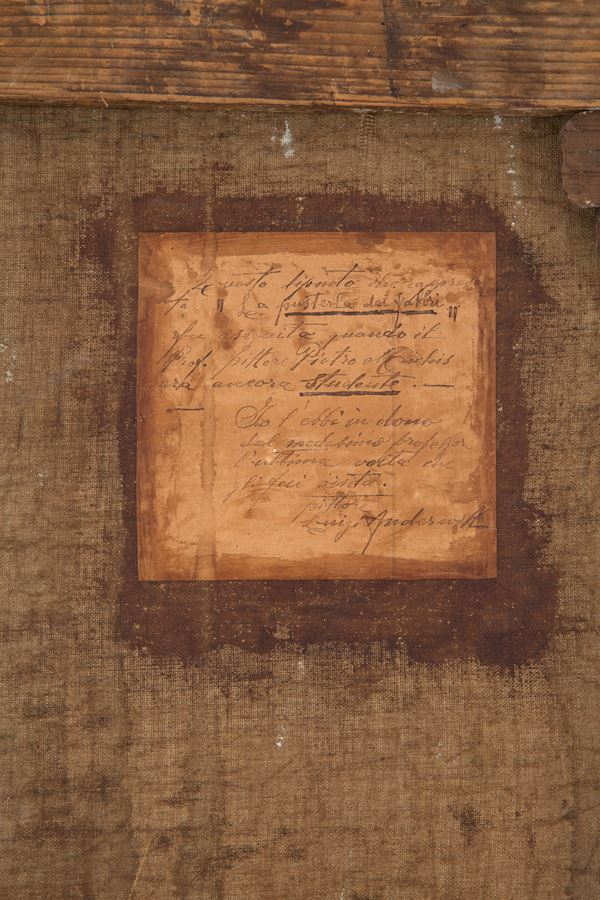 Questo dipinto che rappres
to " La pusterla dei fabbri "
fu eseguita quando il
Prof. pittore Pietro Michis
era ancora studente. —
Io l'ebbi in dono
dal medesimo professor
l'ultima volta che
gli feci visita.
pittore
Luigi